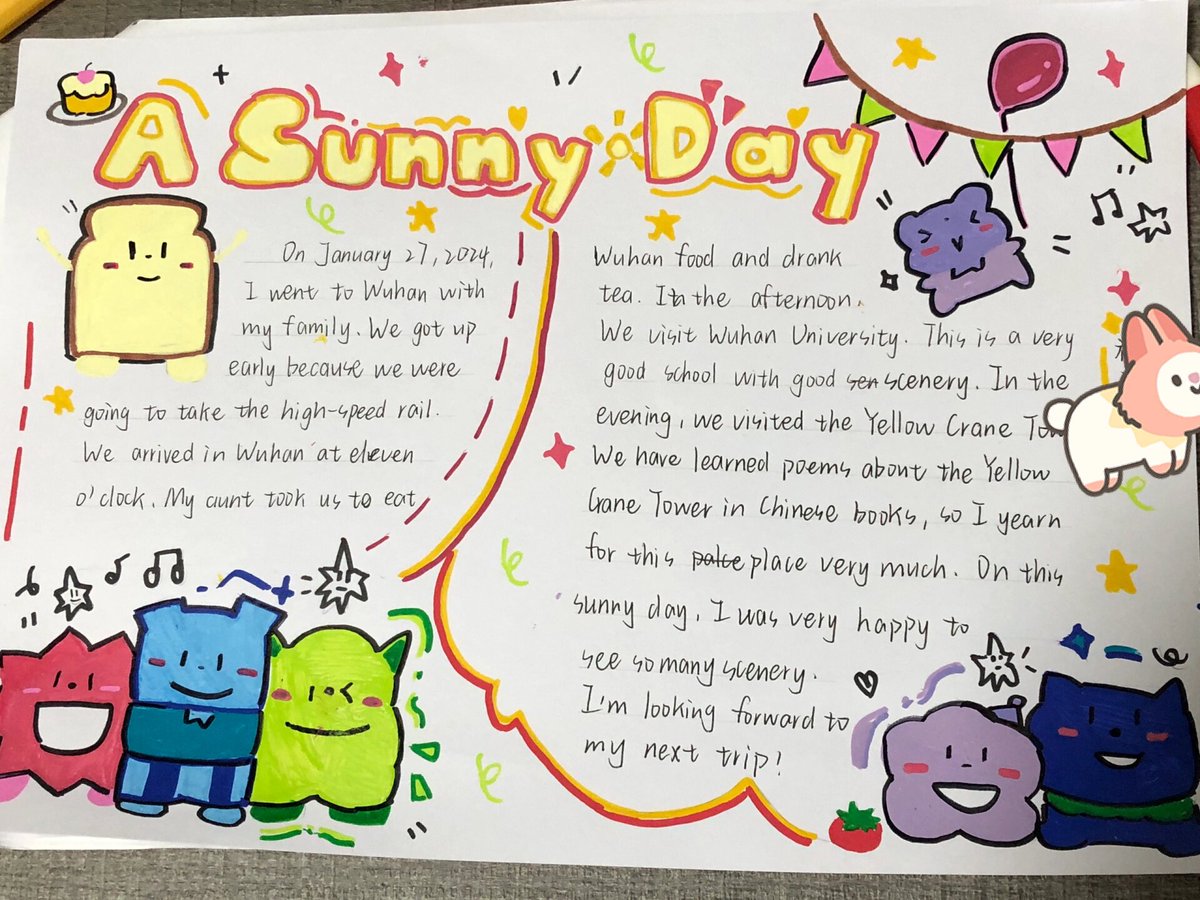 A Sunny Day
On January 27, 2024,
I went to Wuhan with
my family. We got up
early because we were
going to take the high-speed rail.
We arrived in Wuhan at eleven
o'clock. My aunt took us to eat
Wuhan food and drank
tea. In the afternoon.
We visit Wuhan University. This is a very
good school with good sen scenery. In the
evening, we visited the Yellow Crane
We have learned poems about the Yellow
Crane Tower in Chinese books, so I yearn
for this palce place very much. On this
sunny day, I was very happy to
see so many scenery.
I'm looking forward to
my next trip!